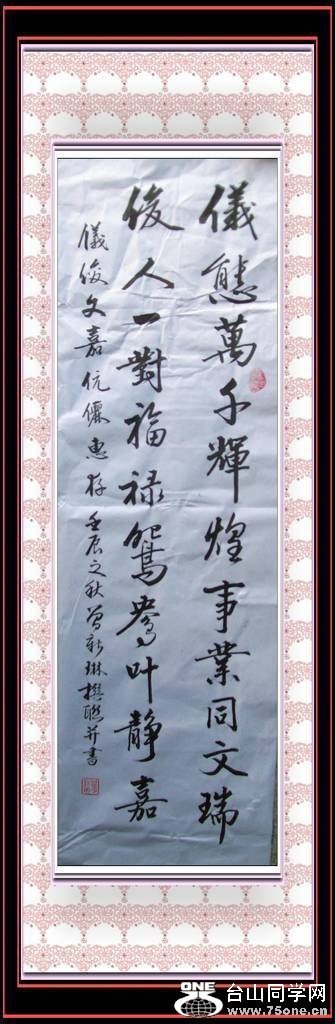 儀態萬千輝煌事業同文瑞
俊人一對福祿鴛鴦叶靜嘉
儀俊文嘉伉儷惠存 壬辰之秋 曾新琳撰聯并書
ONE
台山同学网
www.75one.cn